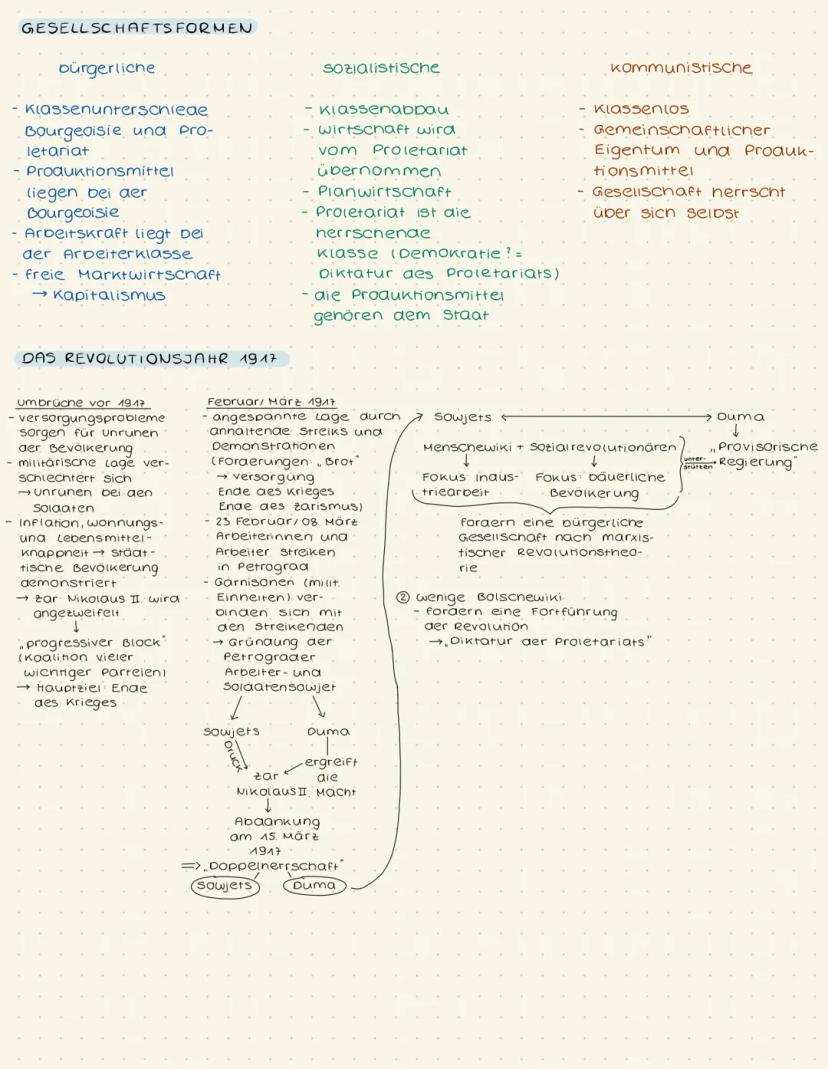 GESELLSCHAFTSFORMEN
bürgerliche
- Klassenunterschiede
Bourgeoisie und Pro-
letariat
- Produktionsmittel
liegen bei der
Bourgeoisie
- Arbeitskraft liegt bei
der Arbeiterklasse
- freie Marktwirtschaft
→ Kapitalismus
sozialistische
- Klassenabbau
- Wirtschaft wird
vom Proletariat
übernommen
- Planwirtschaft
- Proletariat ist die
herrschende
Klasse (Demokratie? =
Diktatur des Proletariats)
- die Produktionsmittel
gehören dem Staat
kommunistische
- Klassenlos
- Gemeinschaftlicher
Eigentum und Produk-
tionsmittel
- Gesellschaft herrscht
über sich selbst
DAS REVOLUTIONSJAHR 1917
Umbrüche vor 1917
- Versorgungsprobleme
sorgen für Unruhen
der Bevölkerung
- militärische Lage ver-
schlechtert sich
→ Unruhen bei den
Soldaten
- Inflation, Wohnungs-
und Lebensmittel-
knappheit → städt-
tische Bevölkerung
demonstriert
→ Zar Nikolaus II. wird
angezweifelt
↓
„progressiver Block"
(Koalition vieler
wichtiger Parteien)
→ Hauptziel: Ende
des Krieges
Februar/März 1917
- angespannte Lage durch
anhaltende Streiks und
Demonstrationen
(Forderungen: „Brot"
→ Versorgung
Ende des Krieges
Ende des Zarismus)
- 23 Februar/08. März
Arbeiterinnen und
Arbeiter streiken
in Petrograd
- Garnisonen (milit.
Einheiten) ver-
binden sich mit
den Streikenden
→ Gründung der
Petrograder
Arbeiter- und
Soldatensowjet
Sowjets Duma
Druck ergreift
Zar die
Nikolaus II. Macht
↓
Abdankung
am 15. März
1917
=> „Doppelherrschaft"
Sowjets Duma
Sowjets ⟷ Duma
Menschewiki + Sozialrevolutionären
unter-
stützen
„Provisorische
Regierung"
Fokus: Indus-
triearbeit
Fokus: bäuerliche
Bevölkerung
fordern eine bürgerliche
Gesellschaft nach marxis-
tischer Revolutionstheo-
rie
② wenige Bolschewiki
- fordern eine Fortführung
der Revolution
→ „Diktatur der Proletariats"